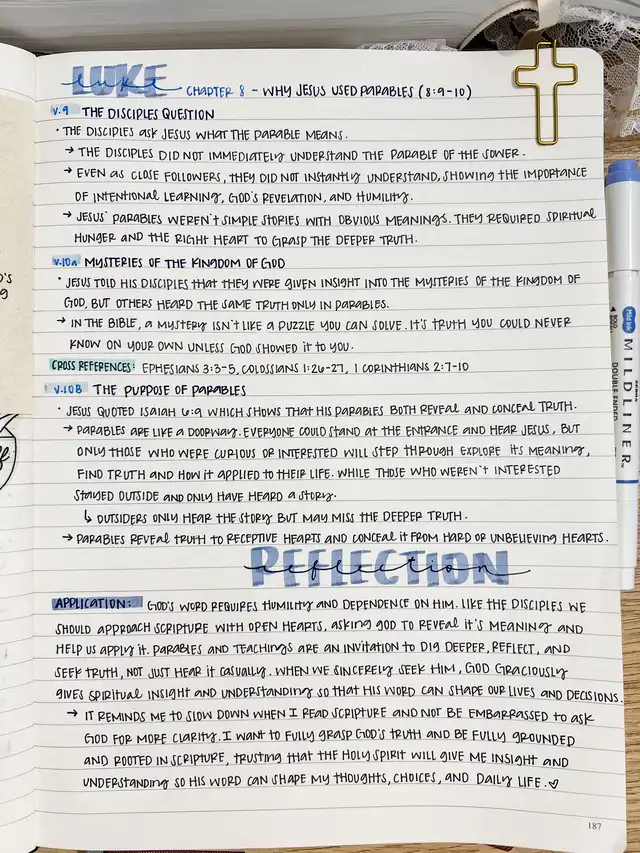 LUKE
luke
CHAPTER 8 - WHY JESUS USED PARABLES (8:9-10)
V.9 THE DISCIPLES QUESTION
• THE DISCIPLES ASK JESUS WHAT THE PARABLE MEANS.
→ THE DISCIPLES DID NOT IMMEDIATELY UNDERSTAND THE PARABLE OF THE SOWER.
→ EVEN AS CLOSE FOLLOWERS, THEY DID NOT INSTANTLY UNDERSTAND, SHOWING THE IMPORTANCE
OF INTENTIONAL LEARNING, GOD'S REVELATION, AND HUMILITY.
→ JESUS' PARABLES WEREN'T SIMPLE STORIES WITH OBVIOUS MEANINGS. THEY REQUIRED SPIRITUAL
HUNGER AND THE RIGHT HEART TO GRASP THE DEEPER TRUTH.
V.10A MYSTERIES OF THE KINGDOM OF GOD
• JESUS TOLD HIS DISCIPLES THAT THEY WERE GIVEN INSIGHT INTO THE MYSTERIES OF THE KINGDOM OF
GOD, BUT OTHERS HEARD THE SAME TRUTH ONLY IN PARABLES.
→ IN THE BIBLE, A MYSTERY ISN'T LIKE A PUZZLE YOU CAN SOLVE. IT'S TRUTH YOU COULD NEVER
KNOW ON YOUR OWN UNLESS GOD SHOWED IT TO YOU.
CROSS REFERENCES: EPHESIANS 3:3-5, COLOSSIANS 1:26-27, 1 CORINTHIANS 2:7-10
V.10B THE PURPOSE OF PARABLES
• JESUS QUOTED ISAIAH 6:9 WHICH SHOWS THAT HIS PARABLES BOTH REVEAL AND CONCEAL TRUTH.
→ PARABLES ARE LIKE A DOORWAY. EVERYONE COULD STAND AT THE ENTRANCE AND HEAR JESUS, BUT
ONLY THOSE WHO WERE CURIOUS OR INTERESTED WILL STEP THROUGH EXPLORE ITS MEANING,
FIND TRUTH AND HOW IT APPLIED TO THEIR LIFE. WHILE THOSE WHO WEREN'T INTERESTED
STAYED OUTSIDE AND ONLY HAVE HEARD A STORY.
↳ OUTSIDERS ONLY HEAR THE STORY BUT MAY MISS THE DEEPER TRUTH.
→ PARABLES REVEAL TRUTH TO RECEPTIVE HEARTS AND CONCEAL IT FROM HARD OR UNBELIEVING HEARTS.
REFLECTION
reflection
APPLICATION: GOD'S WORD REQUIRES HUMILITY AND DEPENDENCE ON HIM. LIKE THE DISCIPLES WE
SHOULD APPROACH SCRIPTURE WITH OPEN HEARTS, ASKING GOD TO REVEAL IT'S MEANING AND
HELP US APPLY IT. PARABLES AND TEACHINGS ARE AN INVITATION TO DIG DEEPER, REFLECT, AND
SEEK TRUTH, NOT JUST HEAR IT CASUALLY. WHEN WE SINCERELY SEEK HIM, GOD GRACIOUSLY
GIVES SPIRITUAL INSIGHT AND UNDERSTANDING SO THAT HIS WORD CAN SHAPE OUR LIVES AND DECISIONS.
→ IT REMINDS ME TO SLOW DOWN WHEN I READ SCRIPTURE AND NOT BE EMBARRASSED TO ASK
GOD FOR MORE CLARITY. I WANT TO FULLY GRASP GOD'S TRUTH AND BE FULLY GROUNDED
AND ROOTED IN SCRIPTURE, TRUSTING THAT THE HOLY SPIRIT WILL GIVE ME INSIGHT AND
UNDERSTANDING SO HIS WORD CAN SHAPE MY THOUGHTS, CHOICES, AND DAILY LIFE. ♡
187
MILDLINER™
DOUBLE ENDED